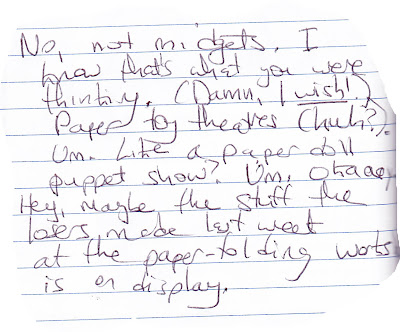 No, not midgets. I
know that's what you were
thinking. (Damn, I wish!)
Paper toy theatres (huh?).
Um. Like a paper doll
puppet show? Um, okaaay
Hey, maybe the stuff the
losers made last week
at the paper-folding works
is on display.